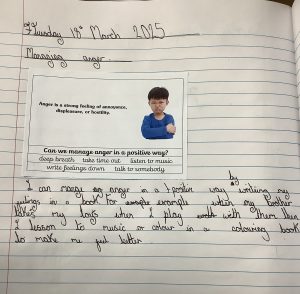 Tuesday 18th March 2025
Managing anger
Anger is a strong feeling of annoyance, displeasure, or hostility.
Can we manage anger in a positive way?
deep breath take time out listen to music
write feelings down talk to somebody
by
I can manage my anger in a positive way writing my
in a book for example when my brother
takes my toys when I play with them then
I lesson to music or colour in a colouring book
to make me feel better